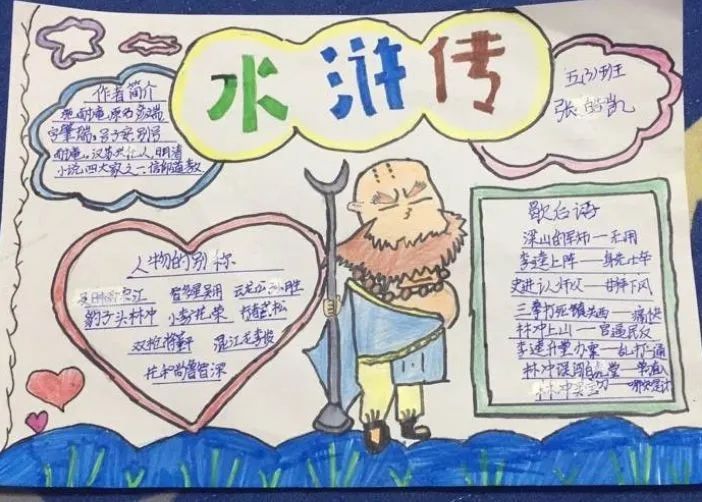 水浒传
五(3)班
张皓凯
作者简介
施耐庵,原名彦端
字肇瑞,号子安别号
耐庵。汉苏兴化人,明清
小说四大家之一,信仰道教
人物的别称
及时雨宋江 智多星吴用 云龙公孙胜
豹子头林冲 小李广花荣 行者武松
双枪将董平 混江龙李俊
花和尚鲁智深
歇后语
深山的军师——无用
李逵上阵——身先士卒
史进认师父——甘拜下风
三拳打死镇关西——痛快
林冲上山——官逼民反
李逵升堂办案——乱打一通
林冲误闯白虎堂——单刀直入
林冲买宝刀——